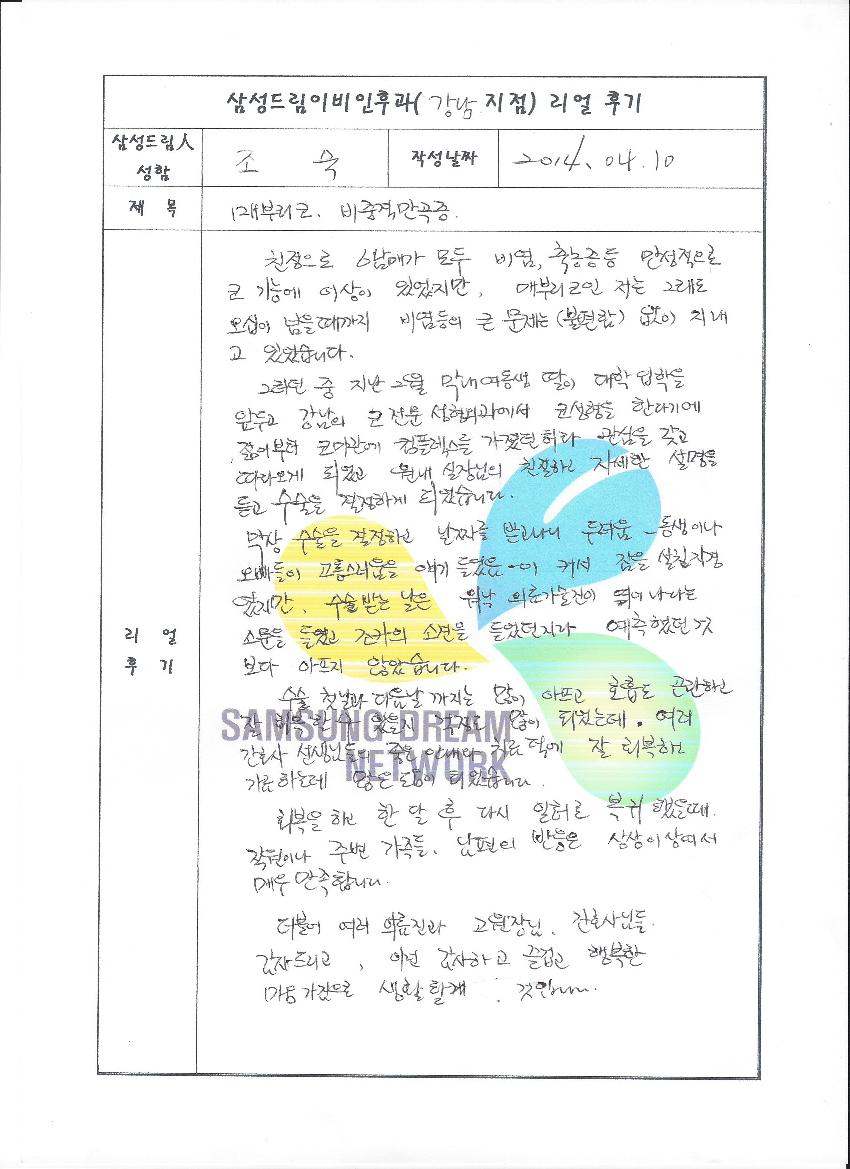 삼성드림이비인후과( 강남 지점) 리얼 후기
삼성드림人
성함
조 욱
작성날짜
2014. 04. 10
제 목
매부리코. 비중격만곡증.
리 얼
후 기
친정으로 6남매가 모두 비염, 축농증등 만성적으로
코 기능에 이상이 있었지만, 매부리코인 저는 그래도
오십이 넘을때까지 비염등의 큰 문제는(불편함) 없이 지내
고 있었습니다.
그러던 중 지난 2월 막내여동생 딸이 대학입학을
앞두고 강남의 코전문 성형외과에서 코성형을 한다기에
젊어부터 코다관에 컴플렉스를 가졌던터라 관심을 갖고
따라오게 되었고 원내 실장님의 친절하고 자세한 설명을
듣고 수술을 결정하게 되었습니다.
막상 수술을 결정하고 날짜를 받고나니 두려움 - 동생이나
오빠들이 고통스러움을 얘기 들었음 - 이 커서 잠을 설칠지경
였지만, 수술받는 날은 워낙 의료기술진이 뛰어나다는
소문을 들었고 조카의 소견을 들었던지라 예측했던 것
보다 아프지 않았습니다.
수술 첫날과 다음날 까지는 많이 아프고 호흡도 곤란하고
잘 회복할 수 있을지 걱정도 많이 되었는데. 여러
간호사 선생님들의 좋은 안내와 치료 덕에 잘 회복하고
가료하는데 많은 도움이 되었습니다.
회복을 하고 한 달 후 다시 일터로 복귀 했을때.
직원이나 주변 가족들, 남편의 반응은 상상이상여서
매우 만족합니다.
더불어 여러 의료진과 고원장님, 간호사님들.
감사드리고, 이런 감사하고 즐겁고 행복한
마음가짐으로 생활할게 것입니다.
SAMSUNG DREAM
NETWORK